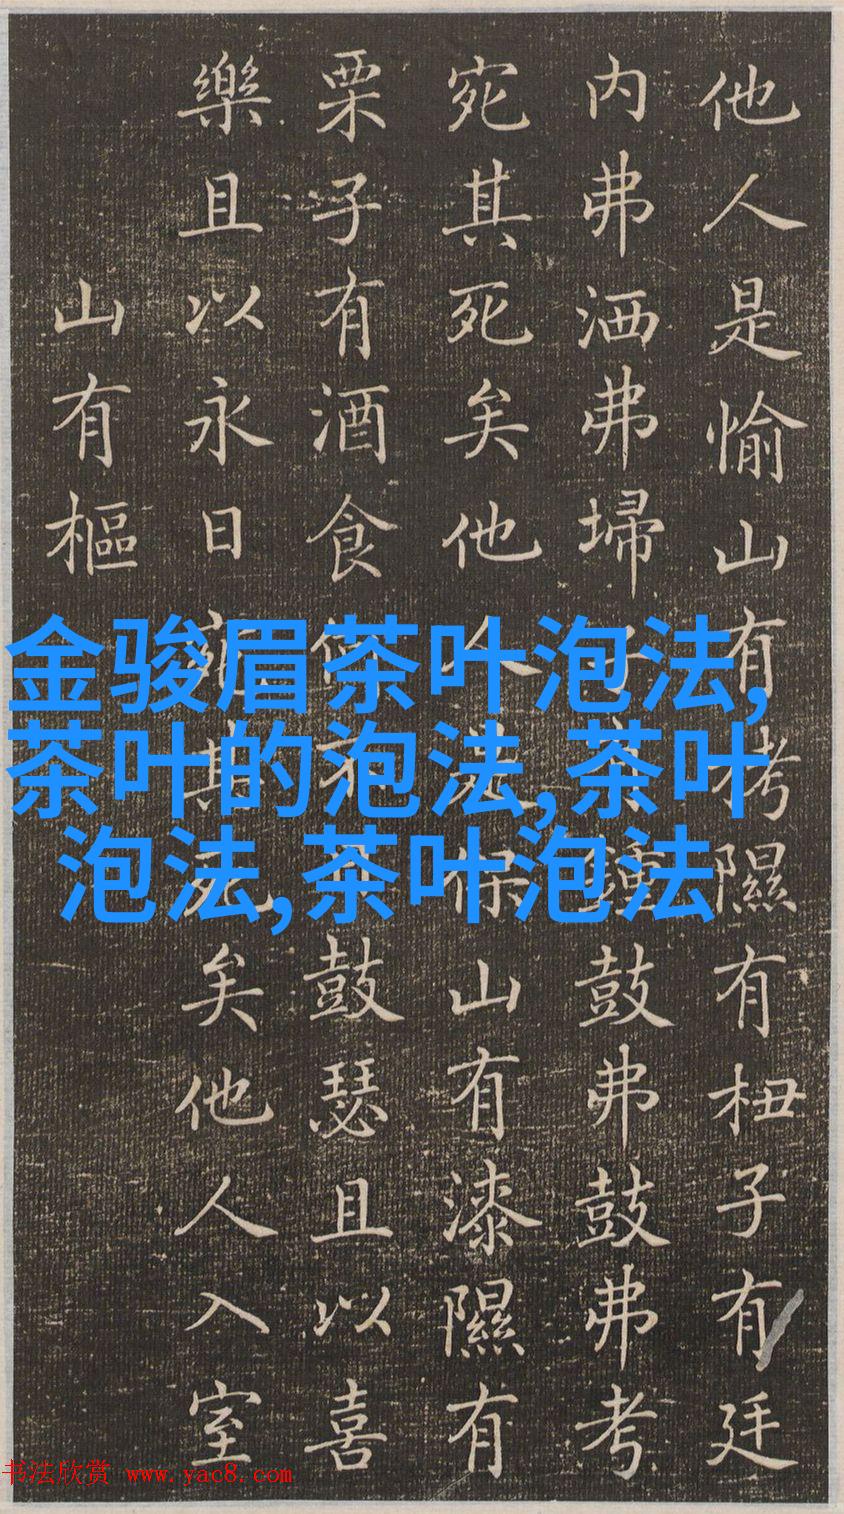 他人是愉山有栲隰有杻子有廷
内弗洒弗埽子鍾鼓弗鼓弗考
宛其死矣他人是保山有漆隰有
栗子有酒食鼓瑟且以喜
樂且以永日其死矣他人入室
山有樞
金骏眉茶叶泡法,
茶叶的泡法,茶叶
泡法,茶叶泡法
书法欣赏 www.yac8.com